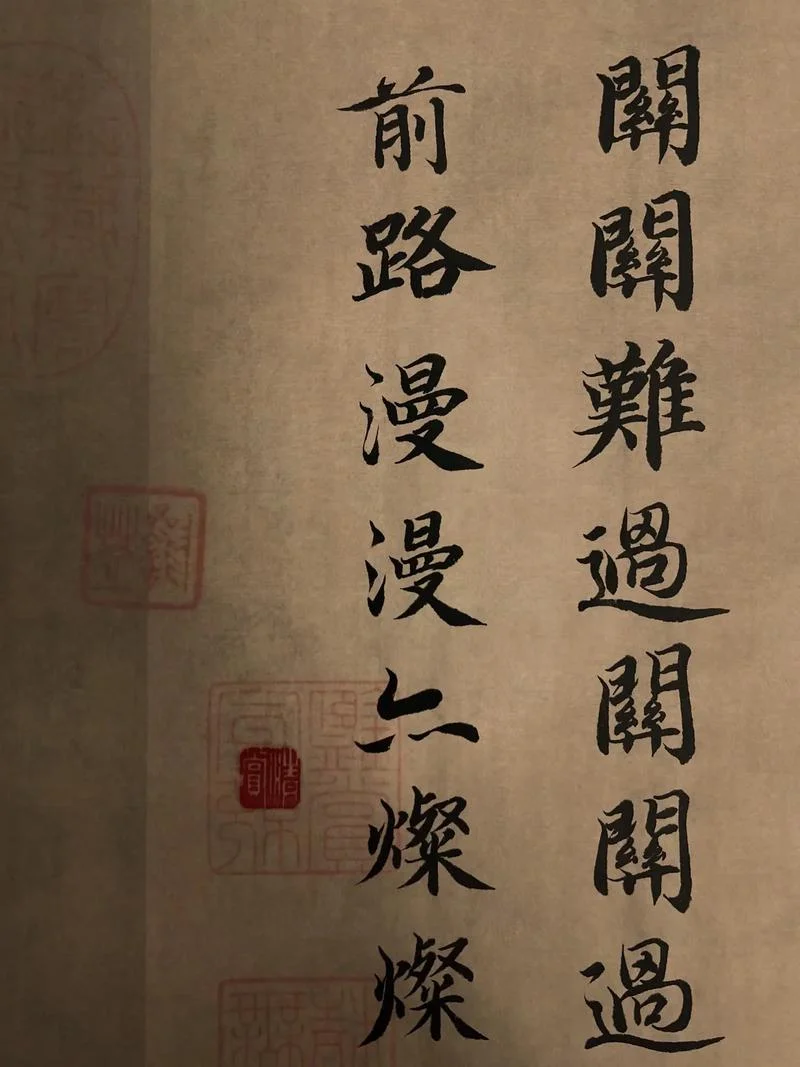 關關難過關關過
前路漫漫亦燦燦
清賞